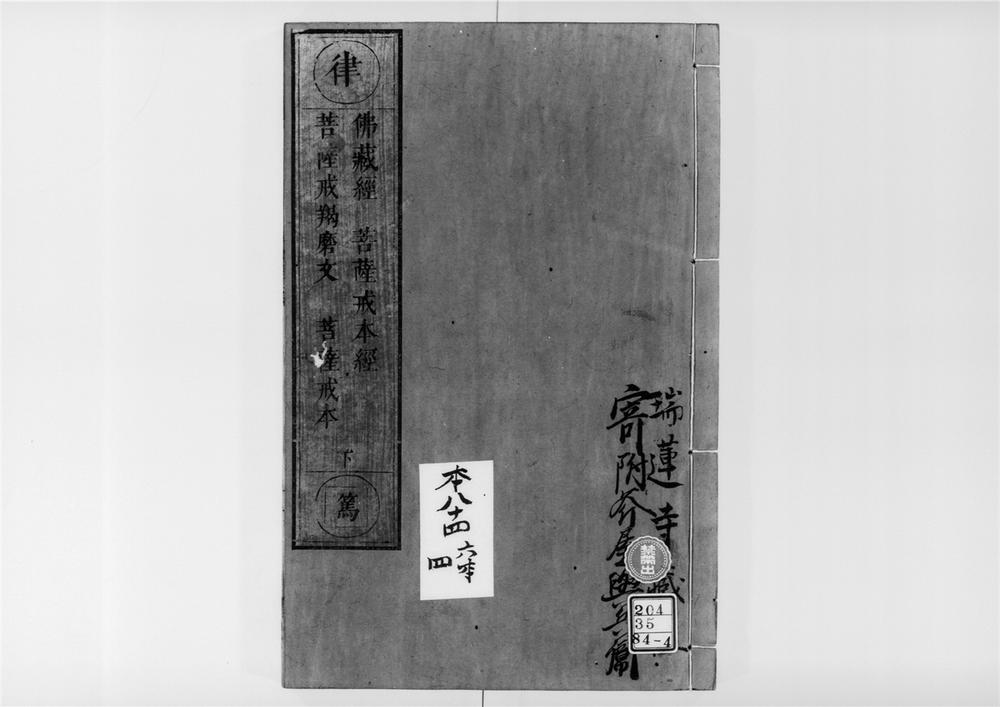 律
佛藏經 菩薩戒本經
菩薩戒羯磨文 菩薩戒本
下
篤
本八十四
六本
四
瑞蓮寺 藏
寄附
禁帶出
204
35
84-4